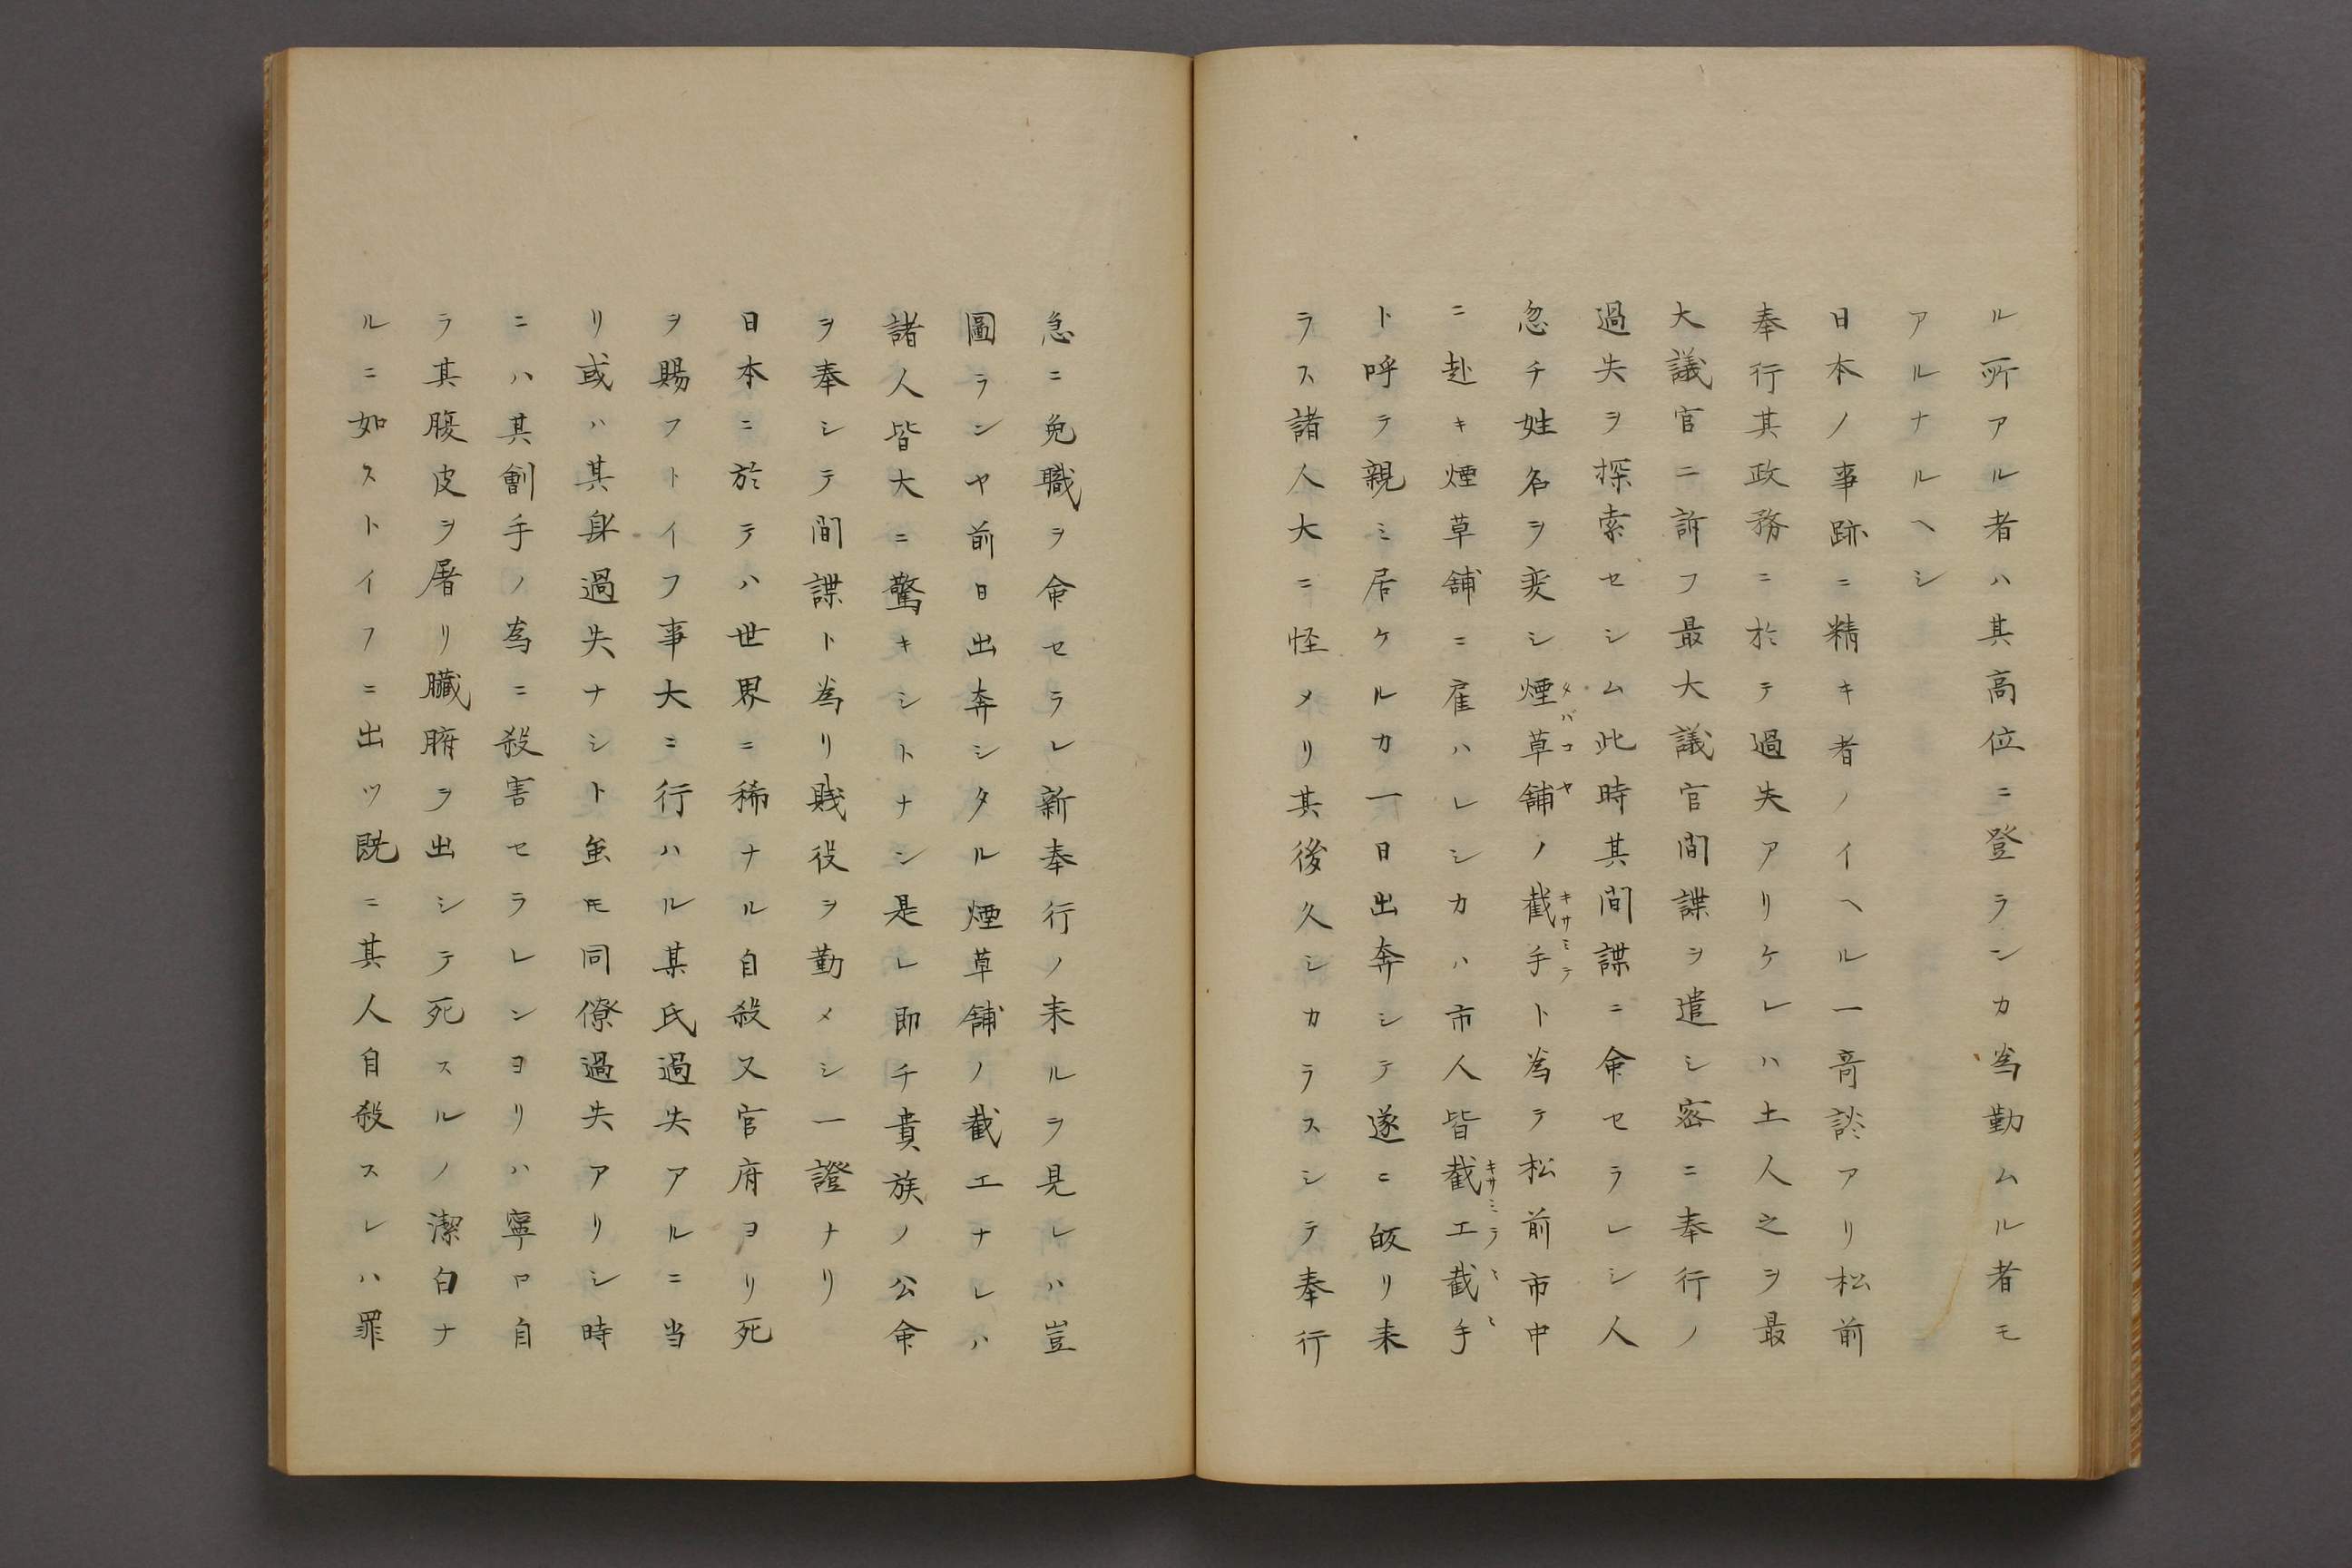 ル所アル者ハ其高位ニ登ランカ為勤ムル者モ
アルナルヘシ
日本ノ事跡ニ精キ者ノイヘル一奇談アリ松前
奉行其政務ニ於テ過失アリケレハ土人之ヲ最
大議官ニ訴フ最大議官間諜ヲ遣シ密ニ奉行ノ
過失ヲ探索セシム此時其間諜ニ命セラレシ人
忽チ姓名ヲ変シ煙草舗ノ截手ト為テ松前市中
タバコヤ
キサミテ
ニ赴キ煙草舗ニ雇ハレシカハ市人皆截エ截手
キサミラミミ
ト呼テ親ミ居ケルカ一日出奔シテ遂ニ皈リ来
ラス諸人大ニ怪メリ其後久シカラスシテ奉行
急ニ免職ヲ命セラレ新奉行ノ来ルヲ見レハ豈
圖ランヤ前日出奔シタル煙草舗ノ截エナレハ
諸人皆大ニ驚キシトナン是レ即チ貴族ノ公命
ヲ奉シテ間諜ト為リ賎役ヲ勤メシ一證ナリ
日本ニ於テハ世界ニ稀ナル自殺又官府ヨリ死
ヲ賜フトイフ事大ニ行ハル某氏過失アルニ当
リ或ハ其身過失ナシト虽モ同僚過失アリシ時
ニハ其劊手ノ為ニ殺害セラレンヨリハ寧ロ自
ラ其腹皮ヲ屠リ臓腑ヲ出シテ死スルノ潔白ナ
ルニ如ストイフニ出ツ既ニ其人自殺スレハ罪